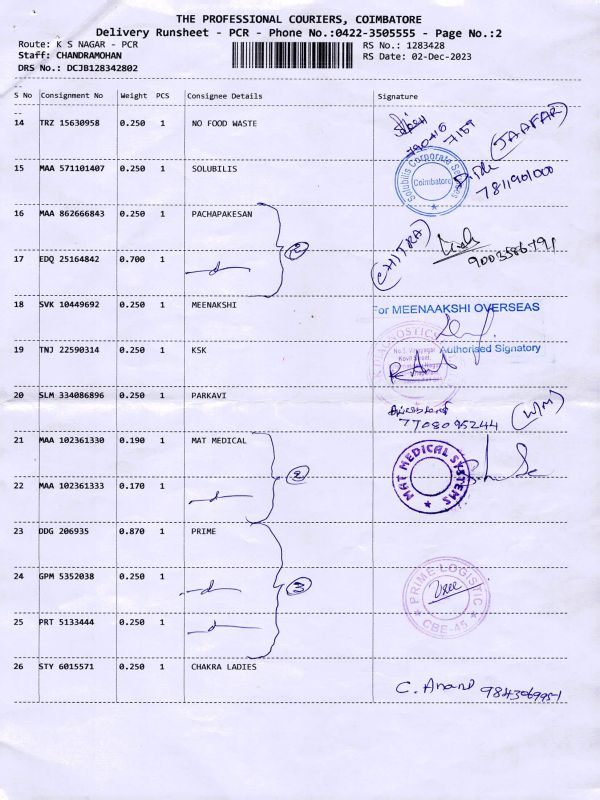 THE PROFESSIONAL COURIERS, COIMBATORE
Delivery Runsheet - PCR - Phone No.:0422-3505555 - Page No.:2
Route: K S NAGAR - PCR
RS No.: 1283428
Staff: CHANDRAMOHAN
RS Date: 02-Dec-2023
DRS No.: DCJB128342802
S No Consignment No Weight PCS Consignee Details Signature
14 TRZ 15630958 0.250 1 NO FOOD WASTE
7159 (JAAFAR)
15 MAA 571101407 0.250 1 SOLUBILIS
Solubilis Corporate Services
Coimbatore
7811901000
16 MAA 862666843 0.250 1 PACHAPAKESAN
2
(CHITRA)
9003586791
17 EDQ 25164842 0.700 1
18 SVK 10449692 0.250 1 MEENAKSHI
For MEENAAKSHI OVERSEAS
Authorised Signatory
19 TNJ 22590314 0.250 1 KSK
20 SLM 334086896 0.250 1 PARKAVI
7708095244 (W/M)
21 MAA 102361330 0.190 1 MAT MEDICAL
2
MAT MEDICAL SYSTEMS
22 MAA 102361333 0.170 1
23 DDG 206935 0.870 1 PRIME
24 GPM 5352038 0.250 1
3
PRIME LOGISTIC
CBE-45
25 PRT 5133444 0.250 1
26 STY 6015571 0.250 1 CHAKRA LADIES
C. Anand